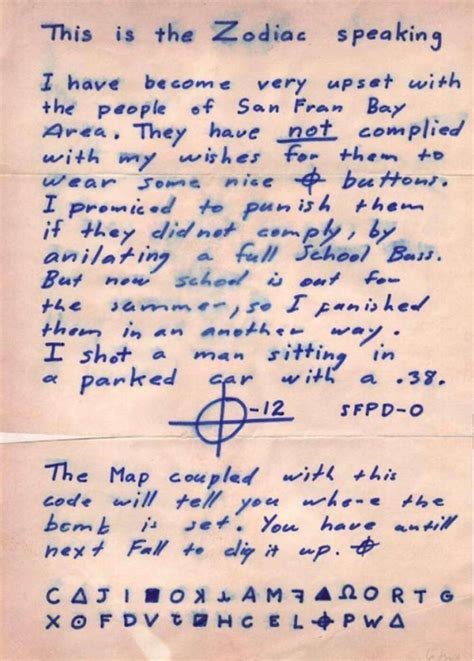 This is the Zodiac speaking
I have become very upset with
the people of San Fran Bay
Area. They have not complied
with my wishes for them to
wear some nice ⌖ buttons.
I promiced to punish them
if they did not comply, by
anilating a full School Buss.
But now school is out for
the summer, so I punished
them in an another way.
I shot a man sitting in
a parked car with a .38.
⌖-12 SFPD-0
The Map coupled with this
code will tell you where the
bomb is set. You have antill
next Fall to dig it up. ⌖
C Δ J I ■ O K ⅄ A M ꟻ ▲ Ω O R T G
X ⊙ F D V ■ H C E L ⌖ P W Δ